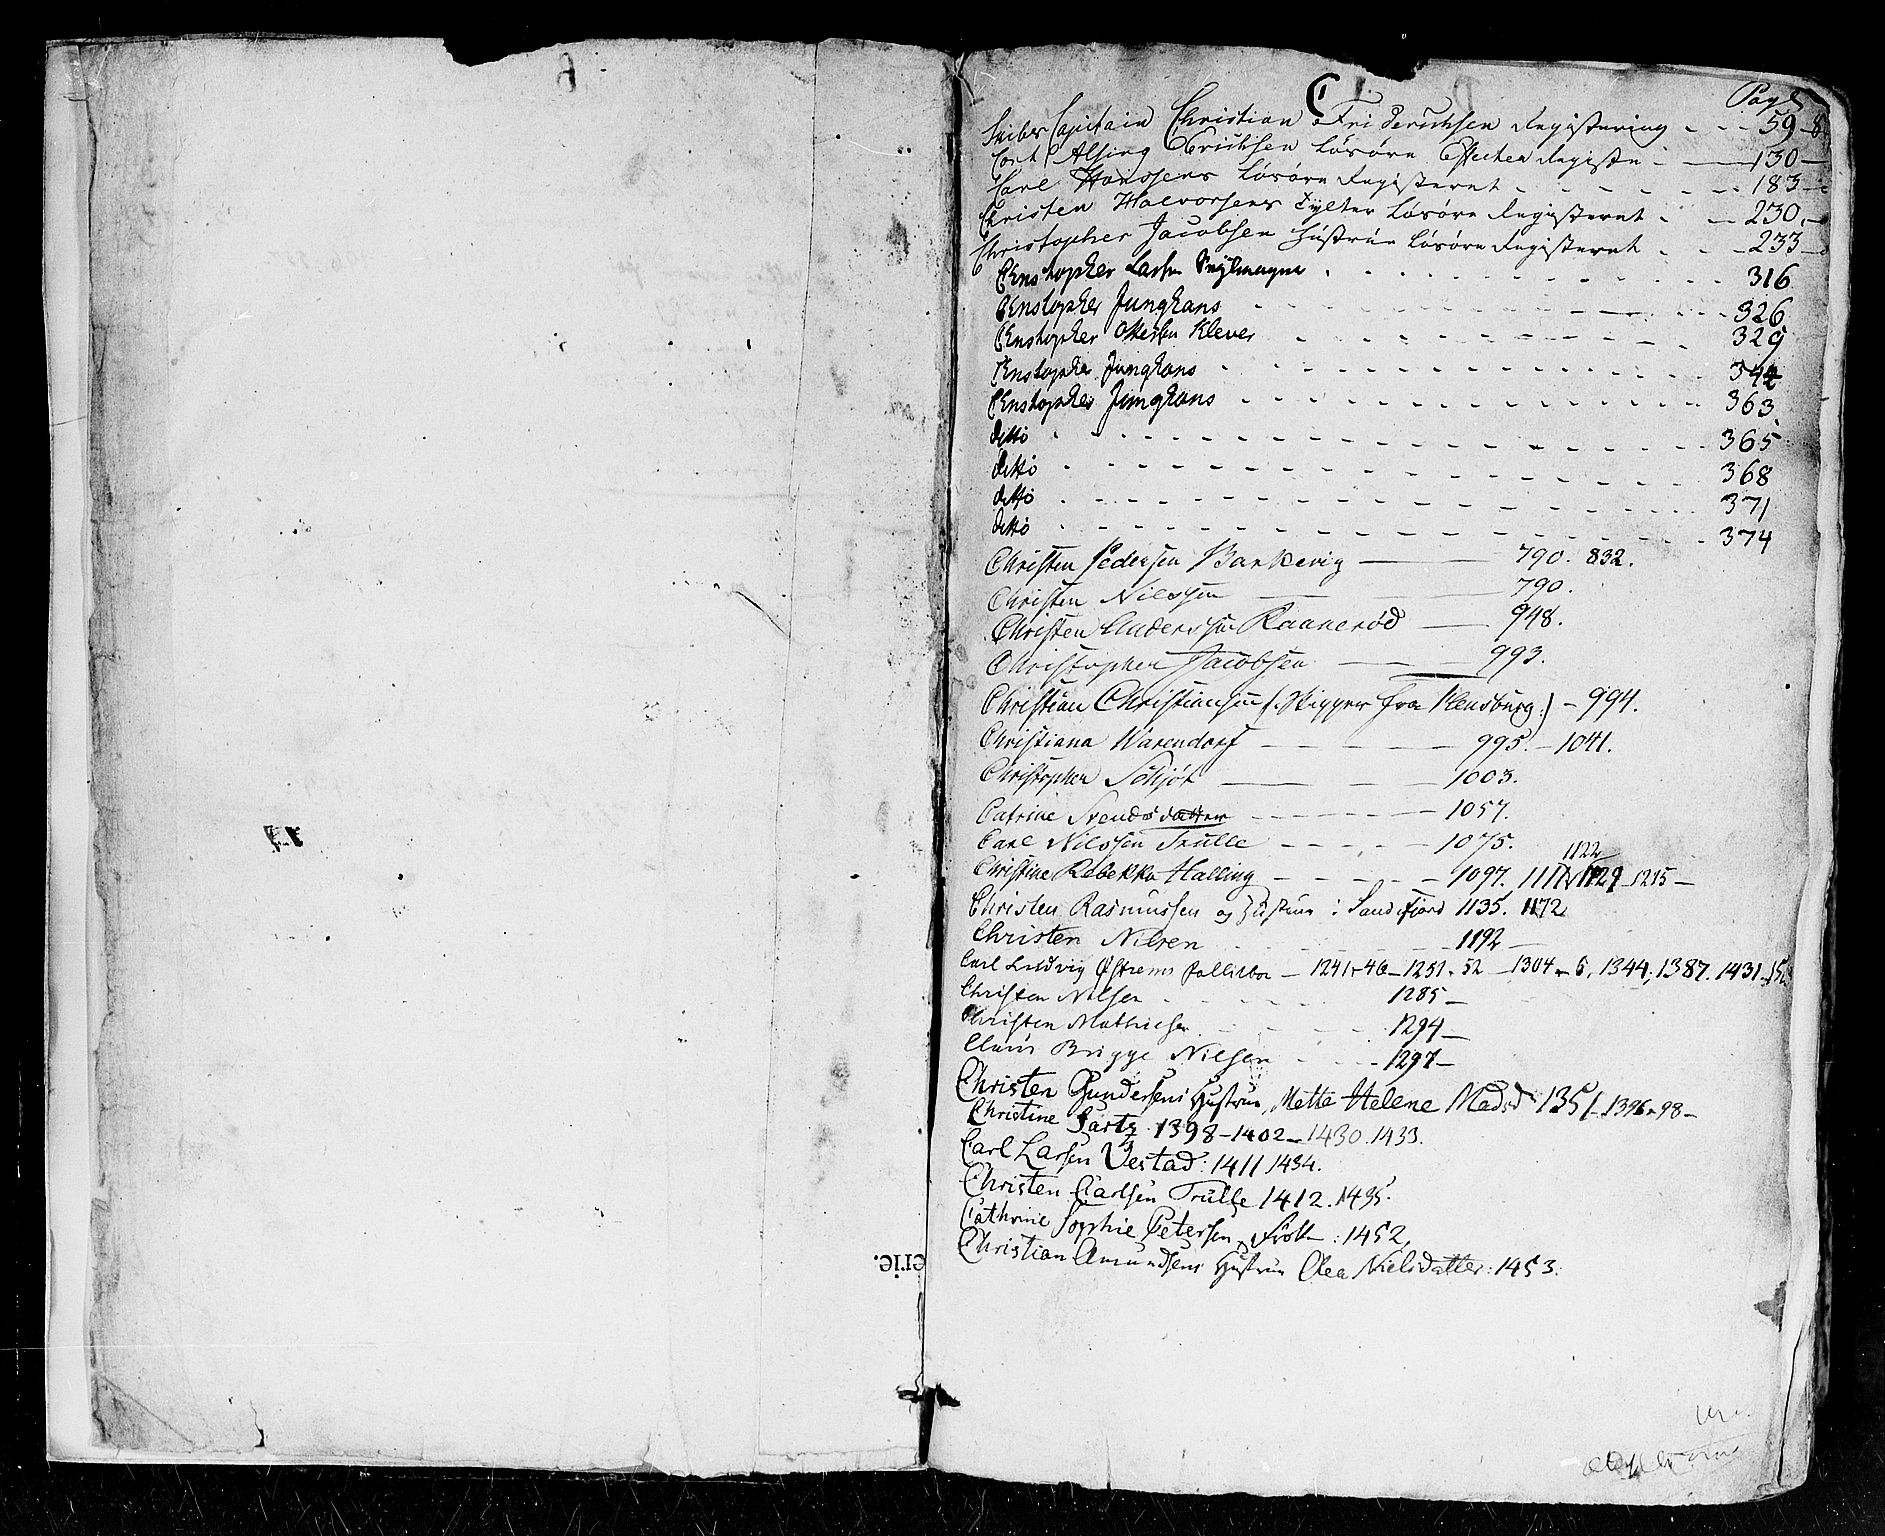 C
Pag:
Skibs Capitain Christian Friderichsen Registering - - - 59
Cort Alsing Erichsen Løsøre Effecter Registr - 130
Carl Hanssens Løsøre Registeret - - - 183
Christen Halvorsens Løsøre Registeret - - 230
Christopher Jacobsen Hustrue Løsøre Registeret - - 233
Christopher Larsen - - - 316
Christopher Junghans - - - 326
Christopher Ottersen Klever - - - 329
Christopher Junghans - - - 344
Christopher Junghans - - - 363
ditto - - - 365
ditto - - - 368
ditto - - - 371
ditto - - - 374
Christen Pedersen Barkevig — 790. 832.
Christen Nilssen — 790.
Christen Anderssen Raanerød — 948.
Christopher Jacobsen — 993.
Christian Christiansen (: Skipper fra Flensburg :) - 994.
Christiana Warendorf — 995. - 1041.
Christopher Schjøt — 1003.
Catrine Svendsdatter - - - 1057.
Carl Nilssen Trulle - - - 1075.
1122
Christine Rebekka Halling - - - 1097. 1117 1129 - 1215 -
Christen Rasmussen og Hustrue i Sandefiord 1135. 1172
Christen Nilsen - - - 1192 -
Carl Ludvig Østrems - 1241 - 46 - 1251 - 52 - 1304 - 6. 1344. 1387. 1431
Christen Nilsen - - - 1285 -
Christen Mathiesen - - - 1294 -
Claus Brigge Nielsen - - - 1297 -
Christen Gundersens Hustrue, Mette Helene Madsd 1351 - 1396 - 98 -
Christine Sartz 1398 - 1402 - 1430. 1433.
Carl Larsen Vestad: 1411 1434.
Christen Carlsen Trulle 1412. 1435.
Cathrine Sophie Petersen : 1452,
Christian Amundsens Hustrue Olea Nielsdatter: 1453:
erie.